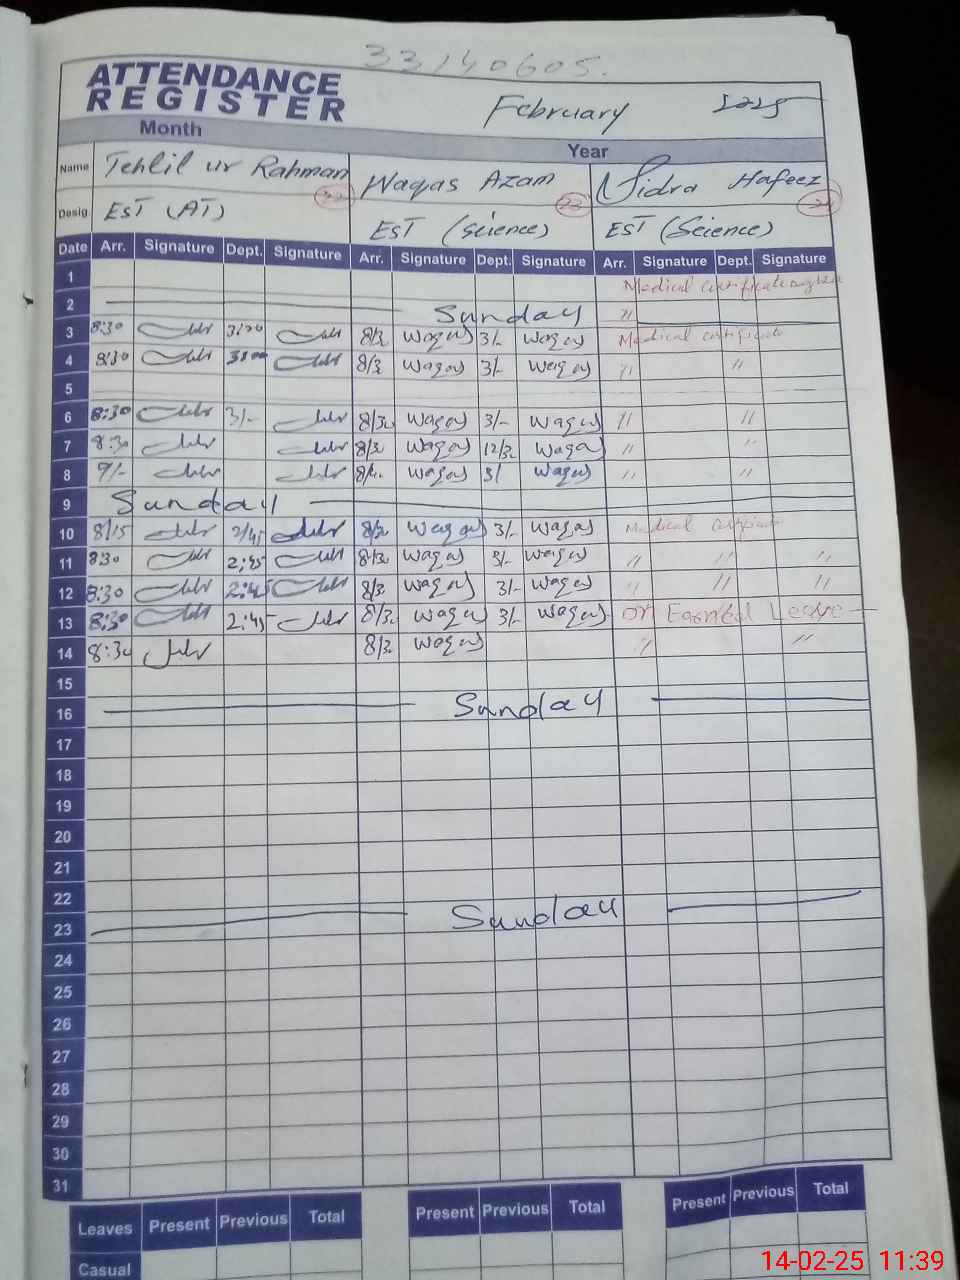 33140605.
ATTENDANCE
REGISTER
February 2025
Month Year
Name Tehlil ur Rahman Waqas Azam Sidra Hafeez
Desig. EST (AT) EST (Science) EST (Science)
Date Arr. Signature Dept. Signature Arr. Signature Dept. Signature Arr. Signature Dept. Signature
1 Medical
2 Sunday "
3 8:30 3:00 8/30 Waqas 3/- Waqas Medical certificate
4 8:30 3:00 8/30 Waqas 3/- Waqas " "
5
6 8:30 3/- 8/30 Waqas 3/- Waqas " "
7 8:30 8/30 Waqas 12/30 Waqas " "
8 9/- Waqas 3/ Waqas " "
9 Sunday
10 8/15 2/45 8/30 Waqas 3/- Waqas Medical
11 8:30 2:45 8/30 Waqas 3/- Waqas " " "
12 8:30 2:45 8/30 Waqas 3/- Waqas " " "
13 8:30 2:45 8/30 Waqas 3/- Waqas on Earned Leave
14 8:30 8/30 Waqas " "
15
16 Sunday
17
18
19
20
21
22
23 Sunday
24
25
26
27
28
29
30
31
Leaves Present Previous Total Present Previous Total Present Previous Total
Casual
14-02-25 11:39